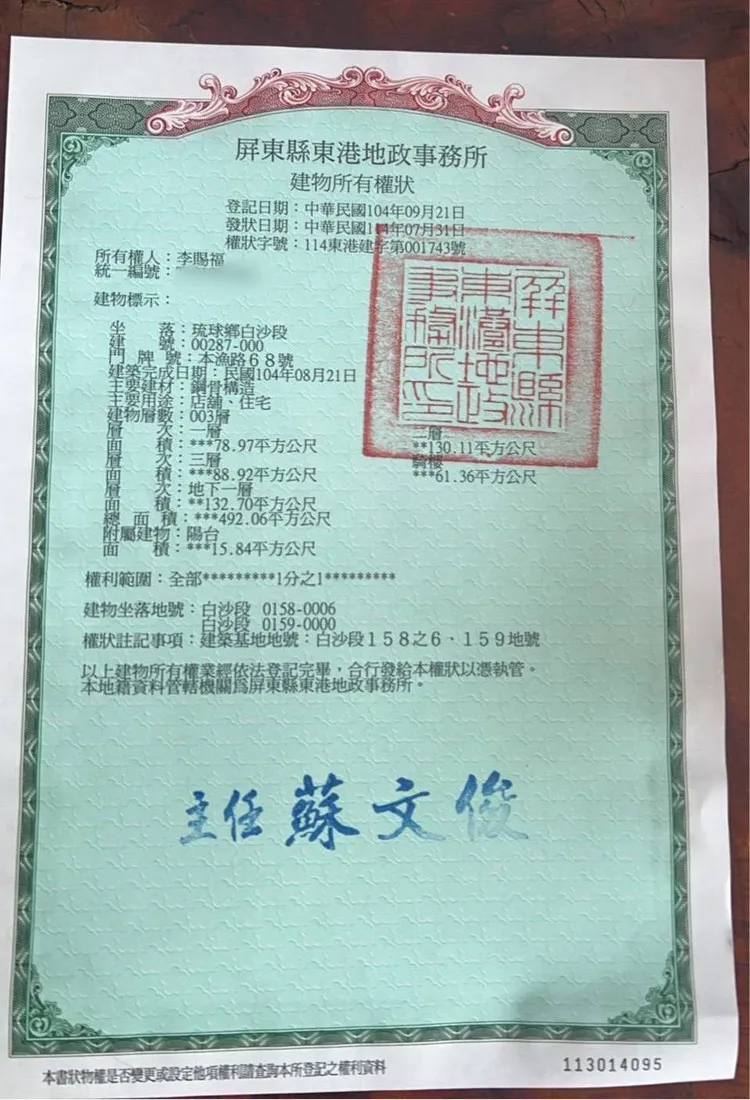 屏東縣東港地政事務所
建物所有權狀
登記日期：中華民國104年09月21日
發狀日期：中華民國114年07月31日
權狀字號：114東港建字第001743號
所有權人：李賜福
統一編號：
建物標示：
坐　　落：琉球鄉白沙段
建　　號：00287-000
門 牌 號：本漁路６８號
建築完成日期：民國104年08月21日
主要建材：鋼骨構造
主要用途：店舖、住宅
建物層數：003層
層　　次：一層　　二層
面　　積：***78.97平方公尺　　**130.11平方公尺
層　　次：三層　　騎樓
面　　積：***88.92平方公尺　　***61.36平方公尺
層　　次：地下一層
面　　積：**132.70平方公尺
總 面 積：***492.06平方公尺
附屬建物：陽台
面　　積：***15.84平方公尺
權利範圍：全部*********1分之1*********
建物坐落地號：白沙段 0158-0006
白沙段 0159-0000
權狀註記事項：建築基地地號：白沙段１５８之６、１５９地號
以上建物所有權業經依法登記完畢，合行發給本權狀以憑執管。
本地籍資料管轄機關為屏東縣東港地政事務所。
屏東縣東港地政事務所印
主任 蘇文俊
本書狀物權是否變更或設定他項權利請查詢本所登記之權利資料
113014095